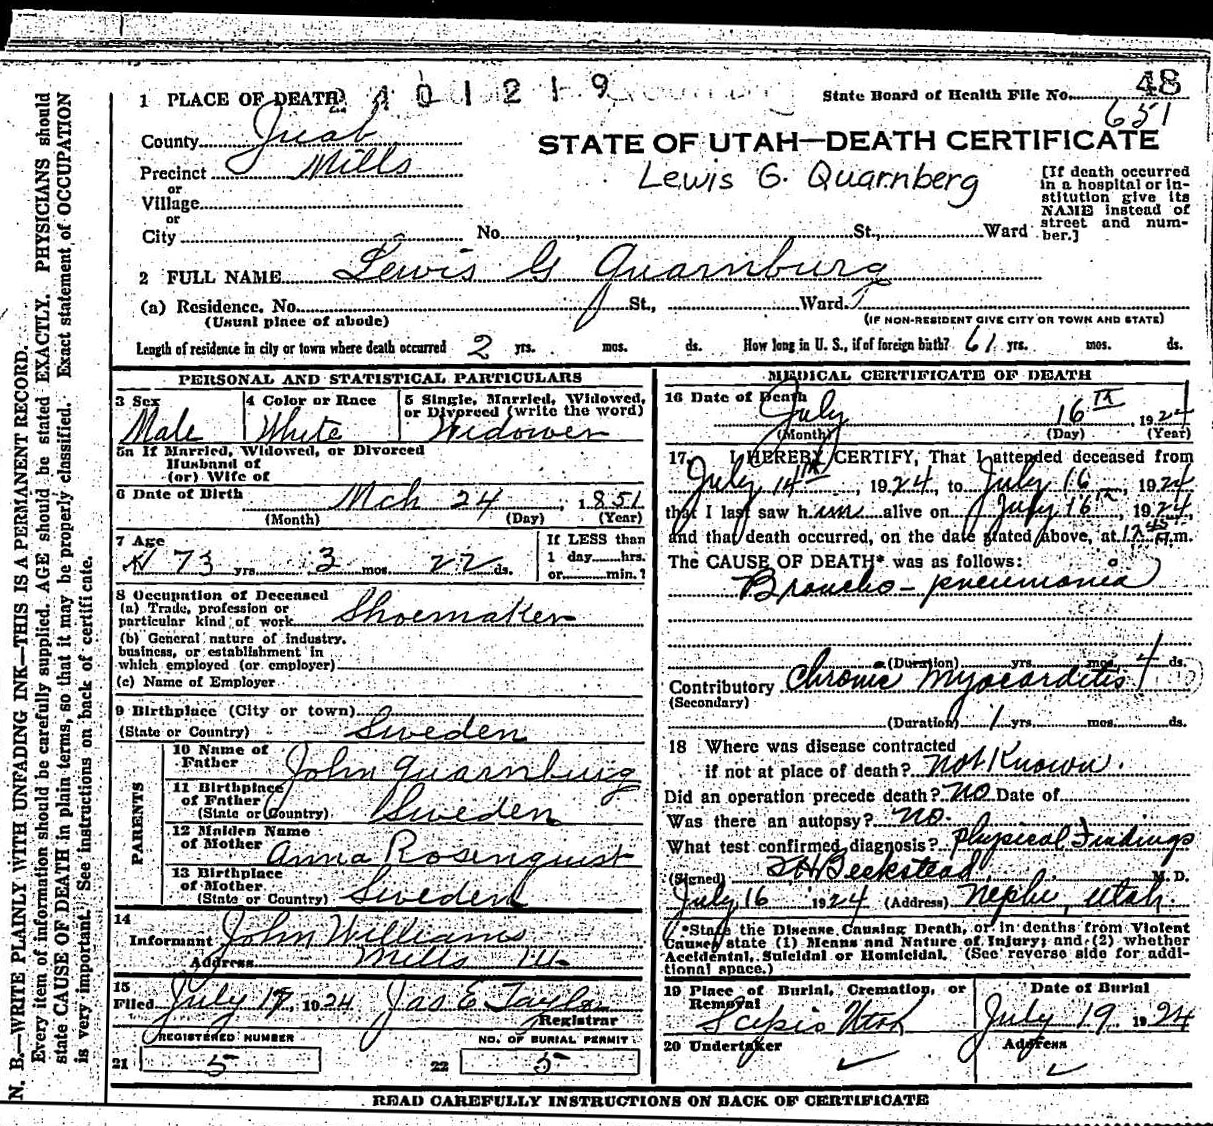 48
1 PLACE OF DEATH 2 4 0 1 2 1 9
State Board of Health File No.
651
County Juab
STATE OF UTAH—DEATH CERTIFICATE
Precinct Mills
Lewis G. Quarnberg
or
Village
or
City No. St., Ward
[If death occurred
in a hospital or in-
stitution give its
NAME instead of
street and num-
ber.]
2 FULL NAME Lewis G Quarnburg
(a) Residence. No. St., Ward.
(Usual place of abode)
(IF NON-RESIDENT GIVE CITY OR TOWN AND STATE)
Length of residence in city or town where death occurred 2 yrs. mos. ds. How long in U. S., if of foreign birth? 61 yrs. mos. ds.
PERSONAL AND STATISTICAL PARTICULARS
3 Sex
Male
4 Color or Race
White
5 Single, Married, Widowed,
or Divorced (write the word)
Widower
5a If Married, Widowed, or Divorced
Husband of
(or) Wife of
6 Date of Birth Mch 24, 1851
(Month) (Day) (Year)
7 Age
73 yrs. 3 mos. 22 ds.
If LESS than
1 day hrs.
or min.?
8 Occupation of Deceased
(a) Trade, profession or
particular kind of work Shoemaker
(b) General nature of industry,
business, or establishment in
which employed (or employer)
(c) Name of Employer
9 Birthplace (City or town)
(State or Country) Sweden
PARENTS
10 Name of
Father John Quarnburg
11 Birthplace
of Father
(State or Country) Sweden
12 Maiden Name
of Mother Anna Rosenquist
13 Birthplace
of Mother
(State or Country) Sweden
14
Informant John Williams
Address Mills Ut
15
Filed July 17, 1924 Jas E Taylor
Registrar
REGISTERED NUMBER
21 5
NO. OF BURIAL PERMIT
22 5
MEDICAL CERTIFICATE OF DEATH
16 Date of Death
July 16th, 1924
(Month) (Day) (Year)
17. I HEREBY CERTIFY, That I attended deceased from
July 14th, 1924, to July 16, 1924
that I last saw him alive on July 16th, 1924,
and that death occurred, on the date stated above, at m.
The CAUSE OF DEATH* was as follows:
Broncho-pneumonia
(Duration) yrs. mos. 4 ds.
Contributory Chronic Myocarditis
(Secondary)
(Duration) 1 yrs. mos. ds.
18 Where was disease contracted
if not at place of death? not Known.
Did an operation precede death? no Date of
Was there an autopsy? no.
What test confirmed diagnosis? Physical Findings
(Signed) Beckstead M. D.
July 16 1924 (Address) Nephi, Utah.
*State the Disease Causing Death, or in deaths from Violent
Causes, state (1) Means and Nature of Injury; and (2) whether
Accidental, Suicidal or Homicidal. (See reverse side for addi-
tional space.)
19 Place of Burial, Cremation, or
Removal
Scipio Utah
Date of Burial
July 19 1924
20 Undertaker
Address
READ CAREFULLY INSTRUCTIONS ON BACK OF CERTIFICATE
N. B.—WRITE PLAINLY WITH UNFADING INK—THIS IS A PERMANENT RECORD.
Every item of information should be carefully supplied. AGE should be stated EXACTLY. PHYSICIANS should
state CAUSE OF DEATH in plain terms, so that it may be properly classified. Exact statement of OCCUPATION
is very important. See instructions on back of certificate.